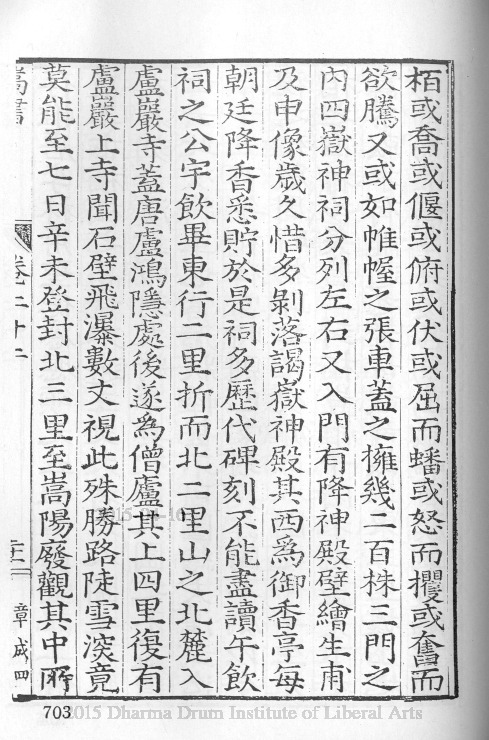 栢或喬或偃或俯或伏或屈而蟠或怒而攫或奮而
欲騰又或如帷幄之張車蓋之擁幾二百株三門之
內四嶽神祠分列左右又入門有降神殿壁繪生甫
及申像歲久惜多剝落謁嶽神殿其西爲御香亭每
朝廷降香悉貯於是祠多歷代碑刻不能盡讀午飲
祠之公宇飲畢東行二里折而北二里山之北麓入
盧巖寺蓋唐盧鴻隱處後遂為僧廬其上四里復有
盧巖上寺聞石壁飛瀑數丈視此殊勝路陡雪深竟
莫能至七日辛未登封北三里至嵩陽廢觀其中所
嵩書
卷之二十二
二十一
章成四
703
2015 Dharma Drum Institute of Liberal Arts